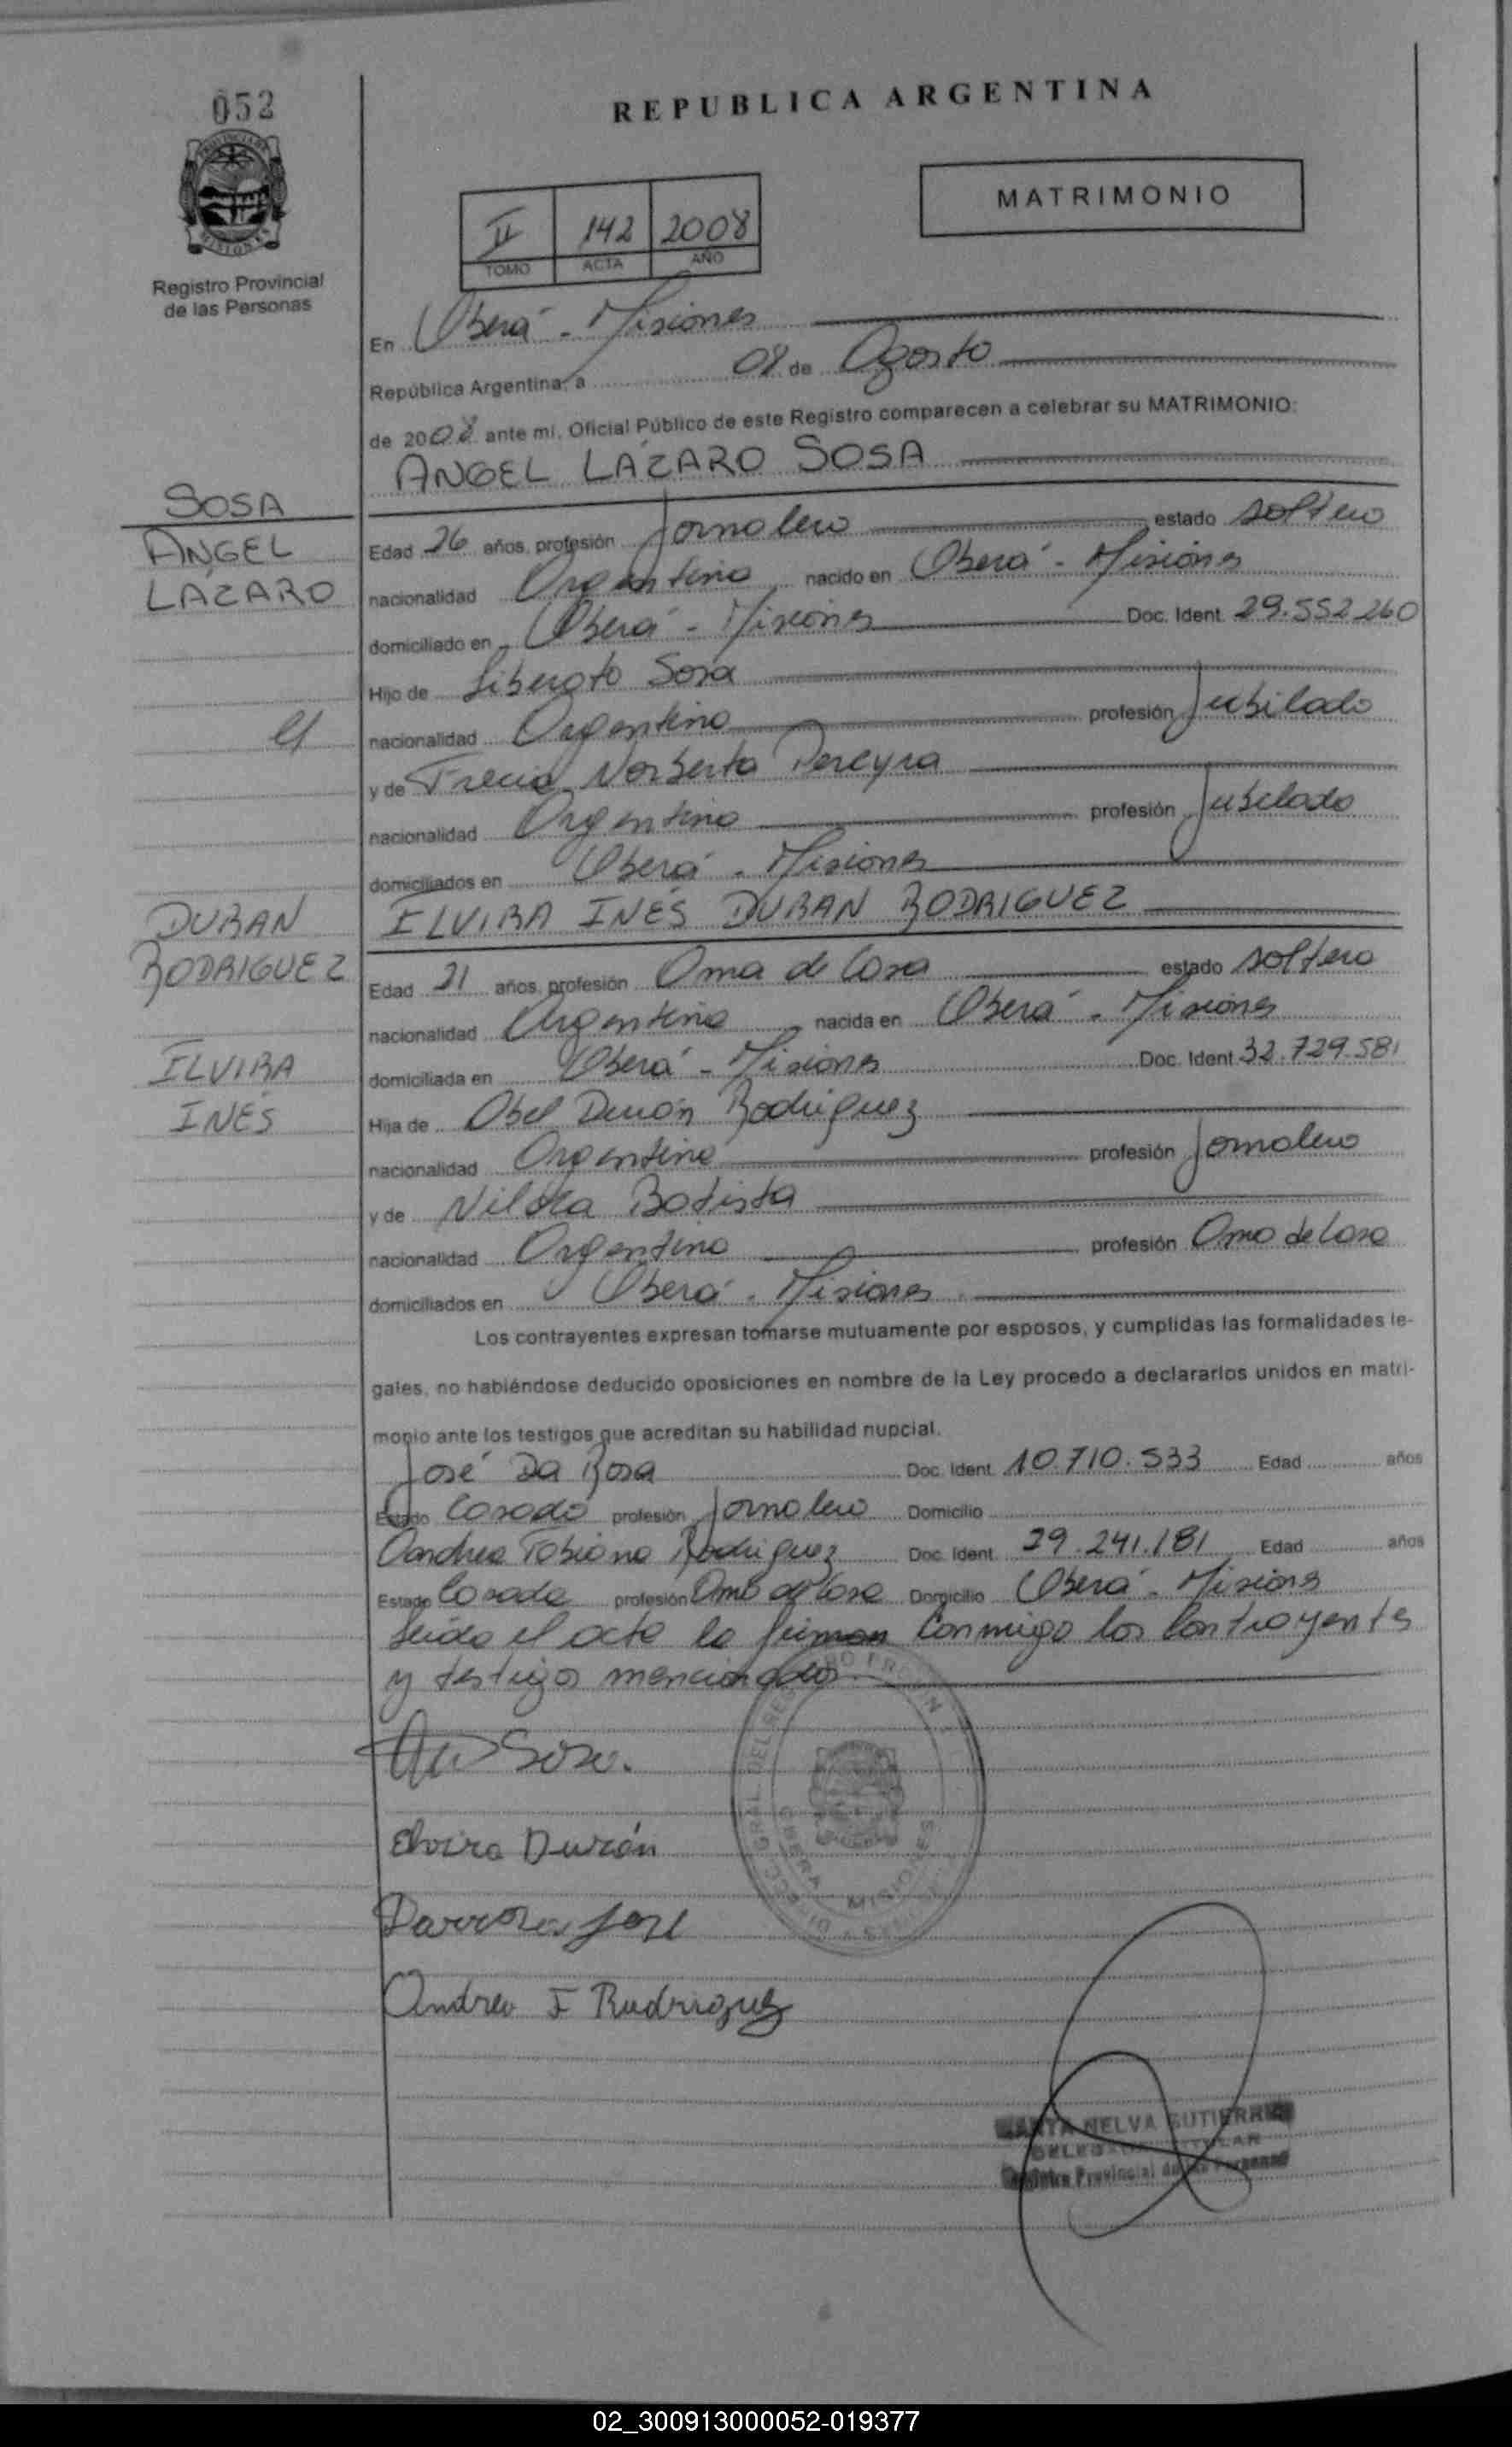 052
REPUBLICA ARGENTINA
MATRIMONIO
II 142 2008
TOMO ACTA AÑO
Registro Provincial
de las Personas
En Oberá - Misiones
República Argentina, a 08 de Agosto
de 2008 ante mi, Oficial Público de este Registro comparecen a celebrar su MATRIMONIO:
ANGEL LÁZARO SOSA
SOSA
ANGEL
LÁZARO
Edad 26 años, profesión Jornalero estado soltero
nacionalidad Argentina nacido en Oberá - Misiones
domiciliado en Oberá - Misiones Doc. Ident. 29.552.260
Hijo de Liberato Sosa
nacionalidad Argentina profesión Jubilado
y
y de Norberta Pereyra
nacionalidad Argentina profesión Jubilada
domiciliados en Oberá - Misiones
ELVIRA INÉS DURAN RODRIGUEZ
DURAN
RODRIGUEZ
ELVIRA
INÉS
Edad 21 años, profesión Ama de Casa estado soltera
nacionalidad Argentina nacida en Oberá - Misiones
domiciliada en Oberá - Misiones Doc. Ident. 32.729.581
Hija de Abel Durán Rodriguez
nacionalidad Argentina profesión Jornalero
y de Nilda Batista
nacionalidad Argentina profesión Ama de Casa
domiciliados en Oberá - Misiones
Los contrayentes expresan tomarse mutuamente por esposos, y cumplidas las formalidades le-
gales, no habiéndose deducido oposiciones en nombre de la Ley procedo a declararlos unidos en matri-
monio ante los testigos que acreditan su habilidad nupcial.
José Da Rosa Doc. Ident. 10.710.533 Edad años
Estado Casado profesión Jornalero Domicilio
Andrea Fabiana Rodriguez Doc. Ident. 29.241.181 Edad años
Estado Casada profesión Ama de Casa Domicilio Oberá - Misiones
Leída el acta la firman conmigo los contrayentes
y testigos mencionados.
Sosa.
Elvira Durán
Darrosa José
Andrea F Rudriguez
MISIONES
NELVA GUTIERREZ
DELEGADA TITULAR
Registro Provincial de las Personas
02_300913000052-019377